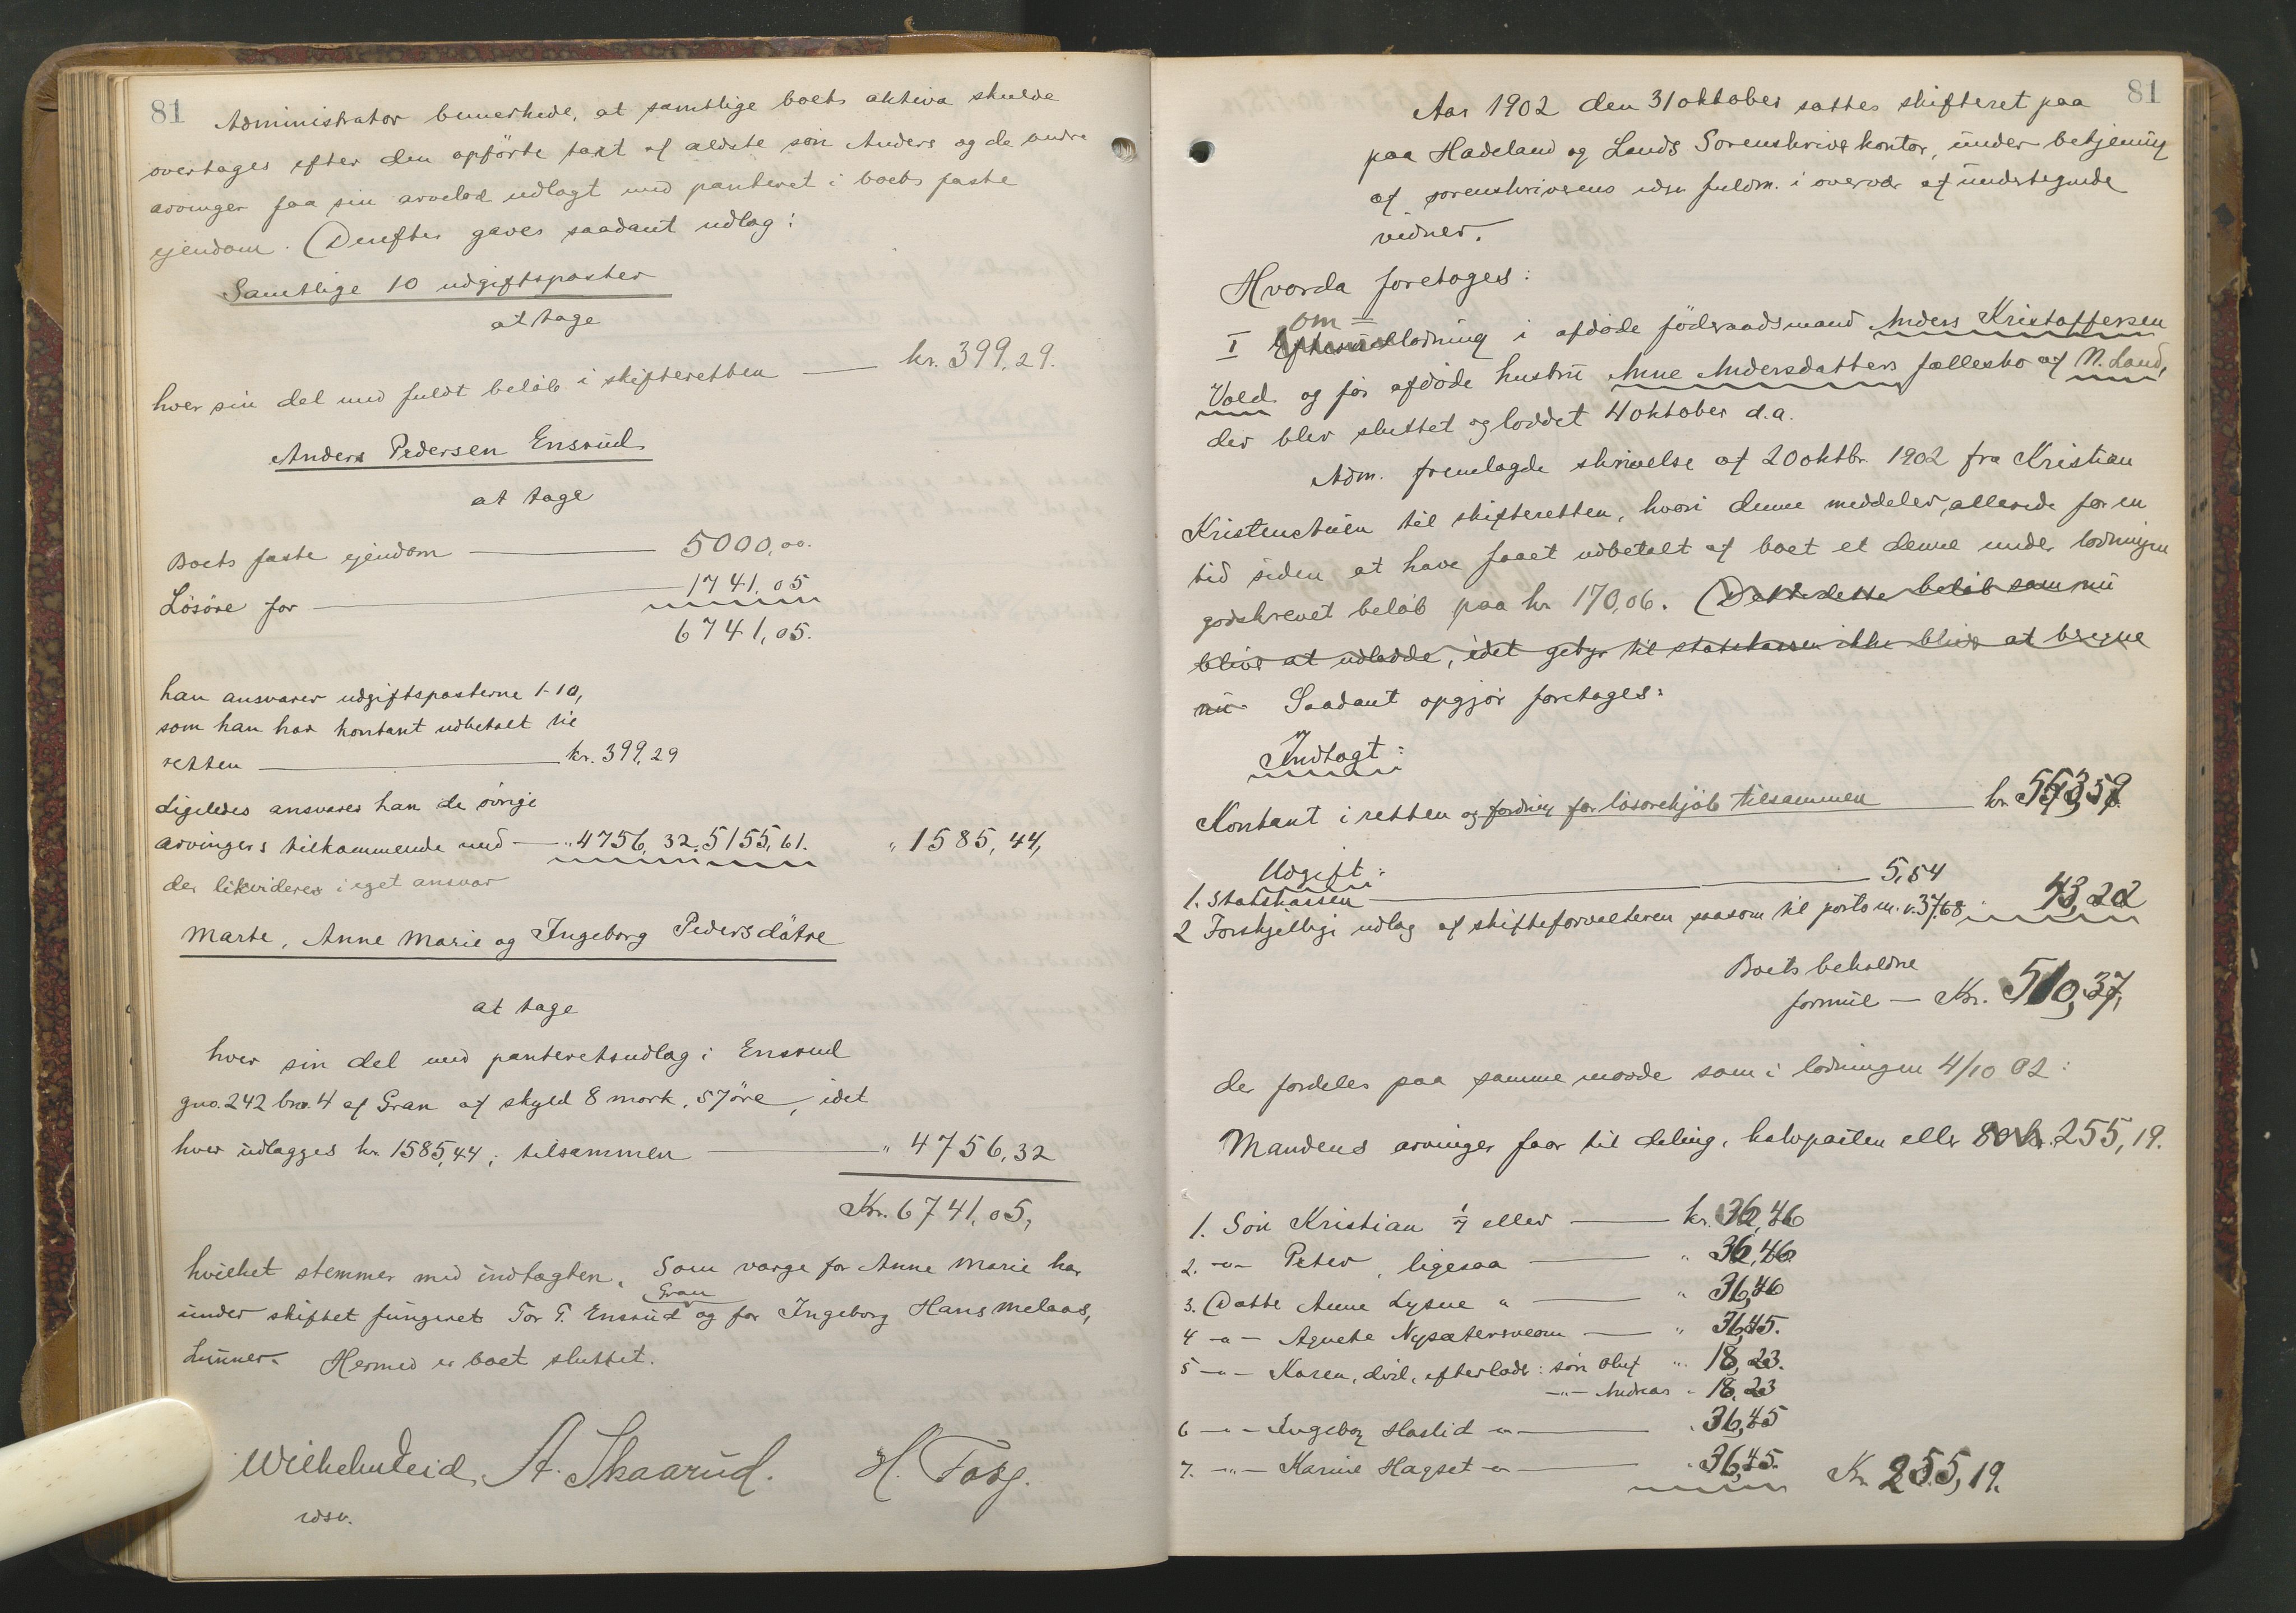 81
Administrator bemerkede, at samtlige boets aktiva skulde
overtages efter den opførte taxt af ældste søn Anders og de andre
arvinger faa sin arvelod udlagt med panteret i boets faste
ejendom. Derefter gaves saadant udlæg:
Samtlige 10 udgiftsposter
at tage
hver sin del med fuldt beløb i skifteretten — kr. 399,29.
Anders Pedersen Ensrud
at tage
Boets faste ejendom — 5000,00.
Løsøre for — 1741,05
6741,05.
han ansvarer udgiftsposterne 1-10,
som han har kontant udbetalt til
retten — kr. 399,29
Ligeledes ansvarer han de øvrige
arvingers tilkommende med — " 4756,32. 5155,61. " 1585,44,
der likvideres i eget ansvar
Marte, Anne Marie og Ingeborg Pedersdøtre
at tage
hver sin del med panteretsudlæg i Ensrud
gno. 242 bno. 4 af Gran af skyld 8 mark, 57 øre, idet
hver udlægges kr. 1585,44; tilsammen — " 4756,32
Kr. 6741,05,
hvilket stemmer med indtægten. Som værge for Anne Marie har
under skiftet fungeret Tor P. Ensrud Gran og for Ingeborg Hans Melaas,
Lunner. Hermed er boet sluttet.
Wilhelm Leid A. Skaarud. H. Forg.
edsv.
81
Aar 1902 den 31 oktober sattes skifteret paa
paa Hadeland og Lands Sorenskriverkontor, under betjening
af sorenskriverens edsv. fuldm. i overvær af undertegnede
vidner.
Hvorda foretoges:
I om lodning i afdøde føderaadsmand Anders Kristoffersen
Vold og før afdøde hustru Anne Andersdatters fællesbo af N. Land,
der blev sluttet og loddet 4 oktober d.a.
Adm. fremlagde skrivelse af 20 oktbr. 1902 fra Kristian
Kristenstuen til skifteretten, hvori denne meddeler, allerede for en
tid siden at have faaet udbetalt af boet et denne under lodningen
godskrevet beløb paa kr 170,06. Det er dette beløb som nu
bliver at udlodde, idet gebyr til statskassen ikke bliver at beregne
nu. Saadant opgjør foretages:
Indtægt:
Kontant i retten og fordring for løsørekjøb tilsammen — kr. 553,59
Udgift:
1. Statskassen — 5,54
2 Forskjellige udlæg af skifteforvalteren saasom til porto m.v. 37,68 " 43,22
Boets beholdne
formue — Kr. 510,37,
der fordeles paa samme maade som i lodningen 4/10 02:
Mandens arvinger faar til deling, halvparten eller kr. 255,19.
1. Søn Kristian 1/7 eller — kr. 36,46
2. -"- Peter, ligesaa — " 36,46
3. Datte Anne Lysne " — " 36,46
4 -"- Agnethe Nysætersveen — " 36,45.
5 -"- Karen, død, efterladt: søn Oluf " 18,23.
-"- Andreas " 18,23
6 -"- Ingeborg Haslid -"- — " 36,45
7. -"- Karine Hagset -"- — " 36,45. Kr. 255,19.